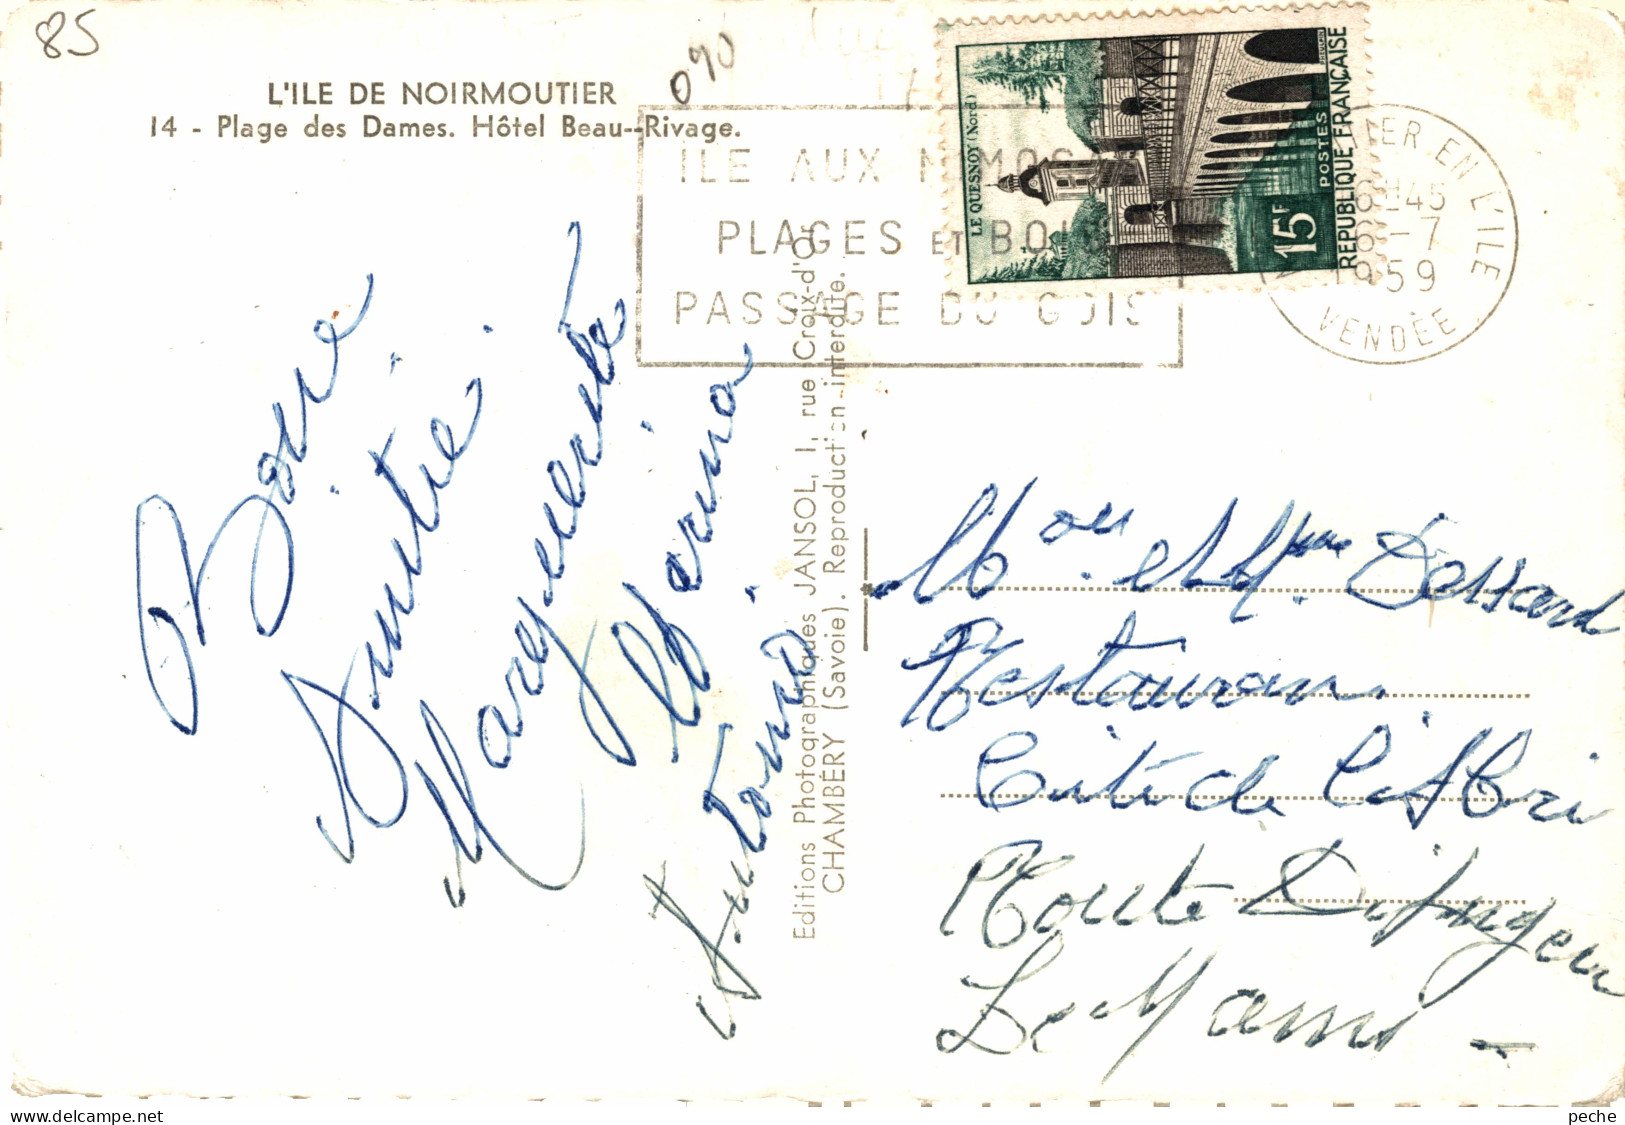 85
090
L'ILE DE NOIRMOUTIER
14 - Plage des Dames. Hôtel Beau--Rivage.
ILE AUX MIMOSAS
PLAGES ET BOIS
PASSAGE DU GOIS
LE QUESNOY (Nord)
15F
POSTES
REPUBLIQUE FRANÇAISE
ER. EN L'ILE
16H45
6 - 7
1959
VENDÉE
Bonne
Amitié
Marguerite
Antonio
Editions Photographiques JANSOL, 1, rue Croix-d'Or
CHAMBÉRY (Savoie). Reproduction interdite.
et Mme Dessard
Restaurant
Cité de l'Abri
Route D'Angers
Le Mans -
peche
www.delcampe.net